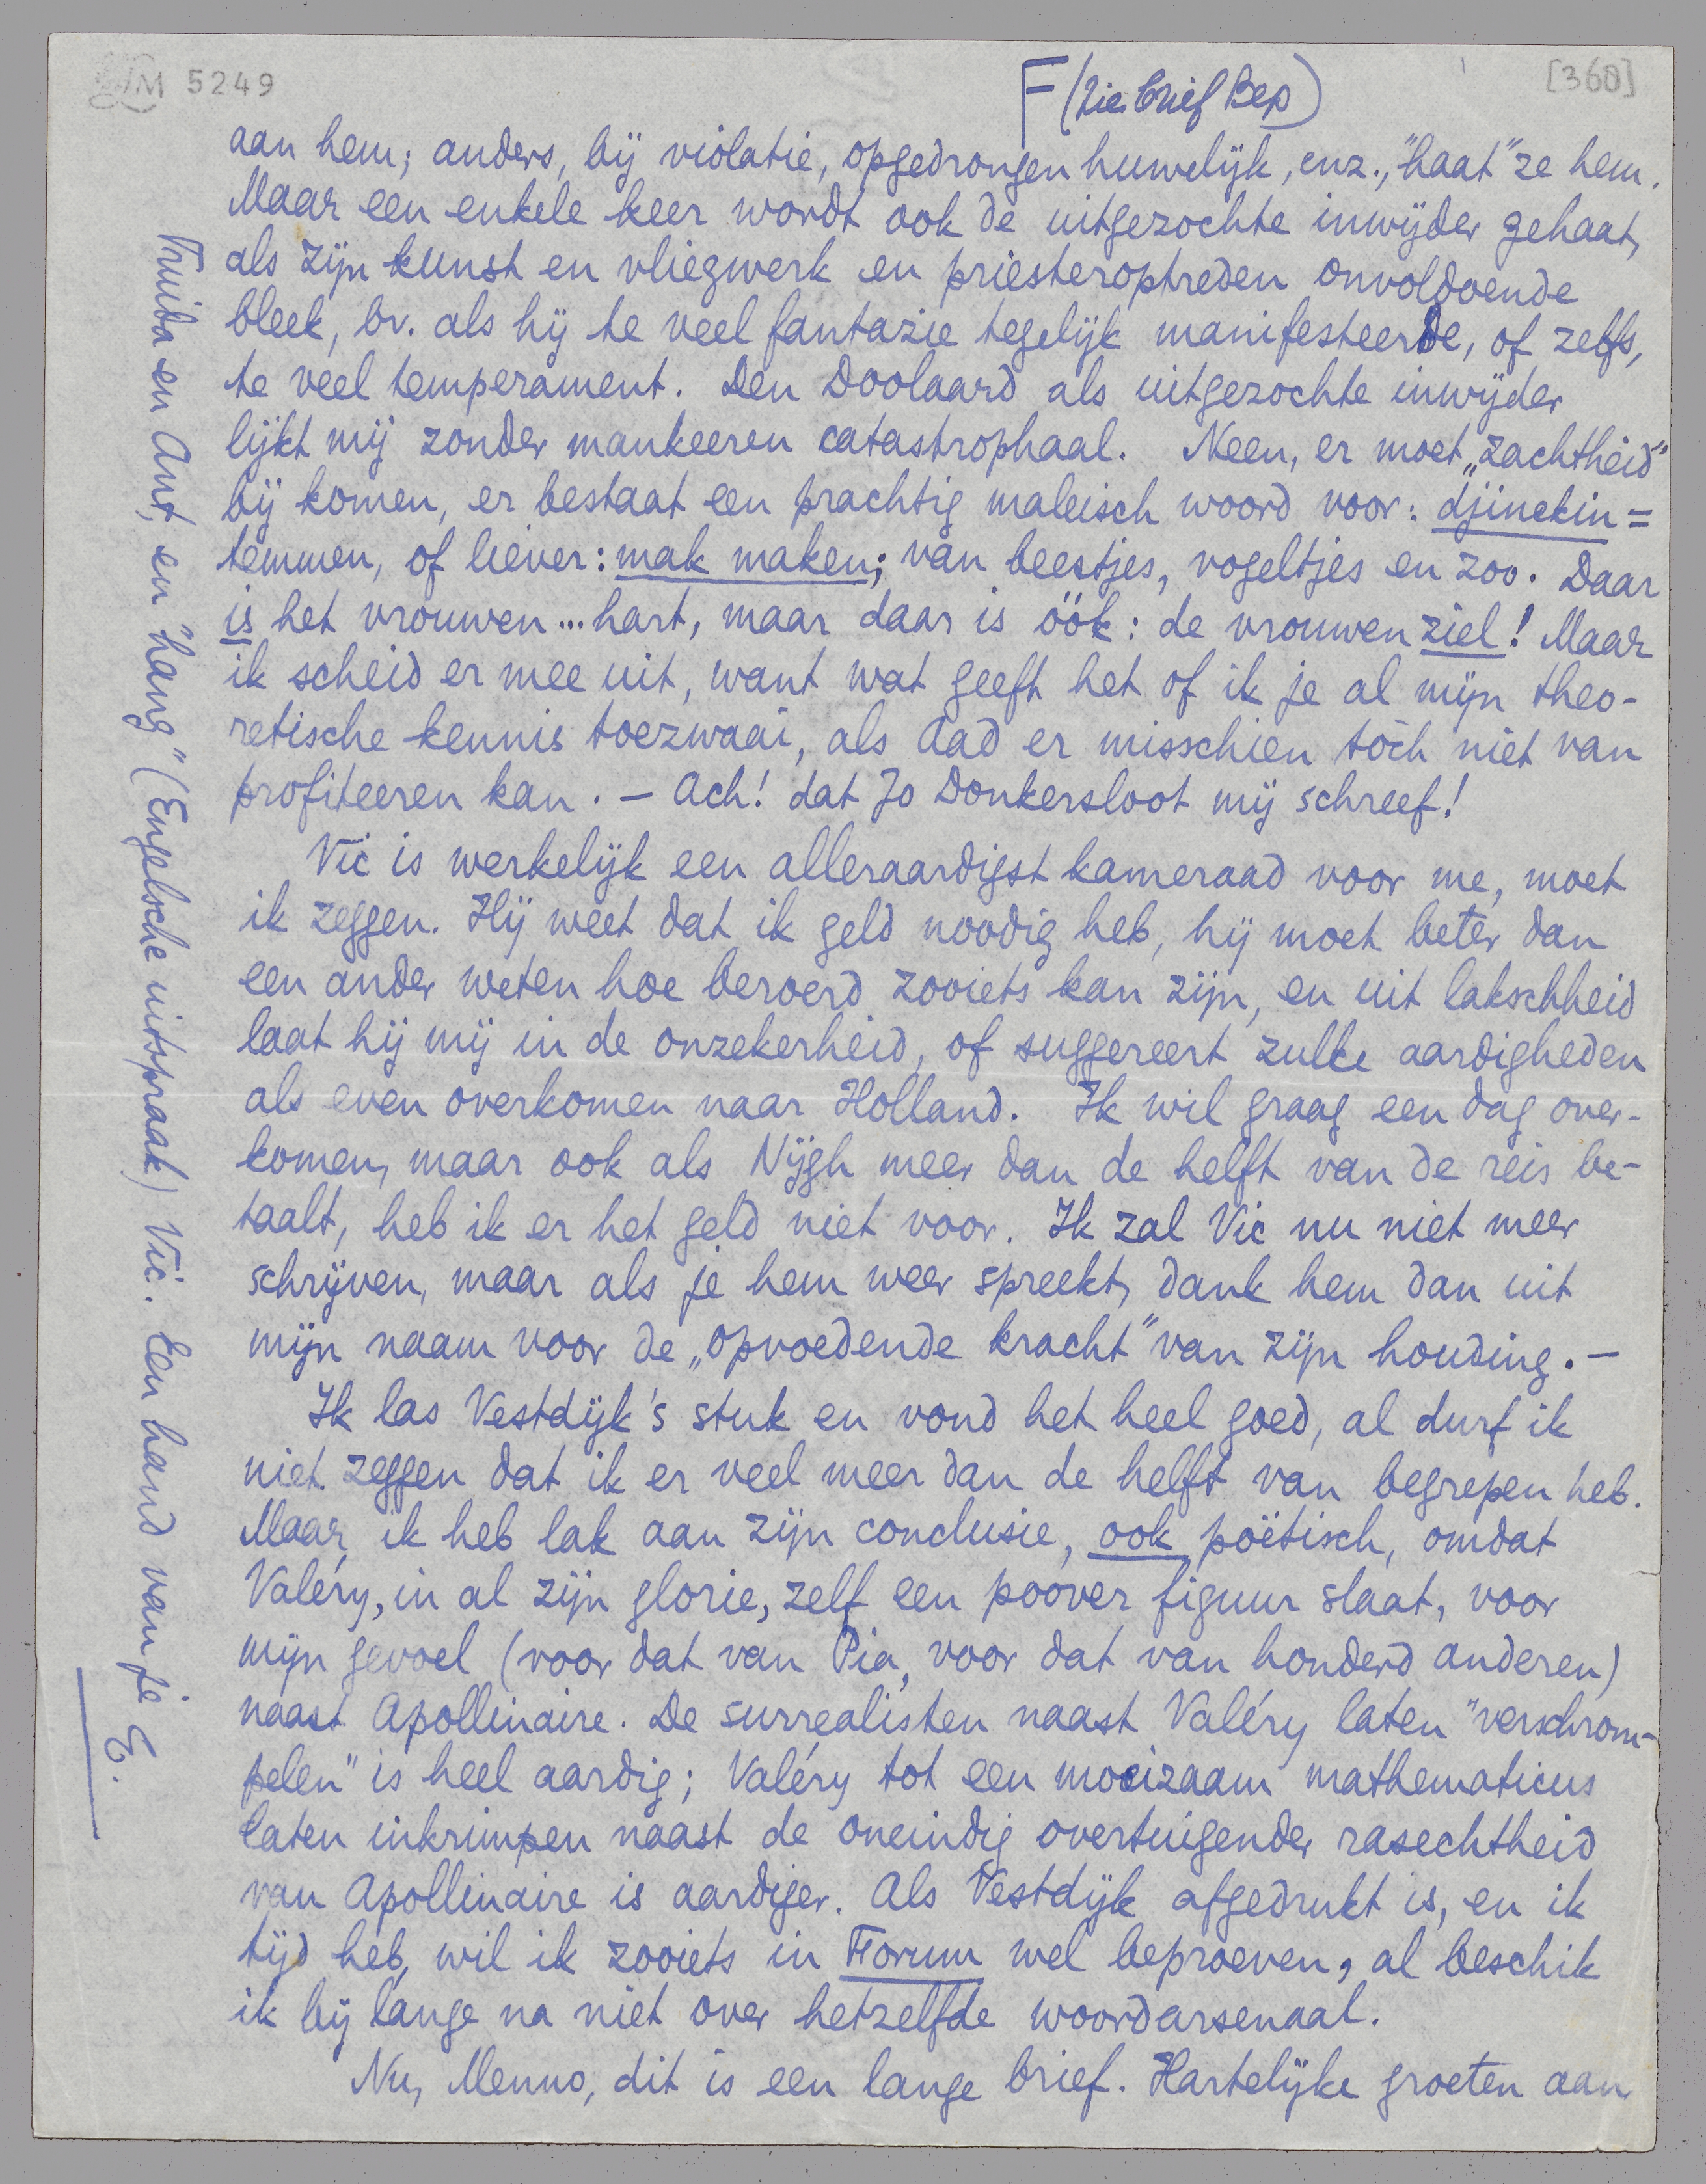 LM 5249
[360]
F (zie brief Bep)
aan hem; anders, bij violatie, opgedrongen huwelijk, enz., "haat" ze hem.
Maar een enkele keer wordt ook de uitgezochte inwijder gehaat,
als zijn kunst en vliegwerk en priesteroptreden onvoldoende
bleek, bv. als hij te veel fantazie tegelijk manifesteerde, of zelfs,
te veel temperament. Den Doolaard als uitgezochte inwijder
lijkt mij zonder mankeeren catastrophaal. Neen, er moet „zachtheid"
bij komen, er bestaat een prachtig maleisch woord voor: djinekin =
temmen, of liever: mak maken; van beestjes, vogeltjes en zoo. Daar
is het vrouwen... hart, maar daar is óók: de vrouwenziel! Maar
ik scheid er mee uit, want wat geeft het of ik je al mijn theo-
retische kennis toezwaai, als Aad er misschien tòch niet van
profiteeren kan. — Ach! dat Jo Donkersloot mij schreef!
Vic is werkelijk een alleraardigst kameraad voor me, moet
ik zeggen. Hij weet dat ik geld noodig heb, hij moet beter dan
een ander weten hoe beroerd zooiets kan zijn, en uit lakschheid
laat hij mij in de onzekerheid, of suggereert zulke aardigheden
als even overkomen naar Holland. Ik wil graag een dag over-
komen, maar ook als Nijgh meer dan de helft van de reis be-
taalt, heb ik er het geld niet voor. Ik zal Vic nu niet meer
schrijven, maar als je hem weer spreekt, dank hem dan uit
mijn naam voor de „opvoedende kracht" van zijn houding. —
Ik las Vestdijk's stuk en vond het heel goed, al durf ik
niet zeggen dat ik er veel meer dan de helft van begrepen heb.
Maar, ik heb lak aan zijn conclusie, ook poëtisch, omdat
Valéry, in al zijn glorie, zelf een poover figuur slaat, voor
mijn gevoel (voor dat van Pia, voor dat van honderd anderen)
naast Apollinaire. De surrealisten naast Valéry laten "verschrom-
pelen" is heel aardig; Valéry tot een moeizaam mathematicus
laten inkrimpen naast de oneindig overtuigender rasechtheid
van Apollinaire is aardiger. Als Vestdijk afgedrukt is, en ik
tijd heb, wil ik zooiets in Forum wel beproeven, al beschik
ik bij lange na niet over hetzelfde woordarsenaal.
Nu, Menno, dit is een lange brief. Hartelijke groeten aan
Truida en Ant, en "hang" (Engelsche uitspraak) Vic. Een hand van je
E.